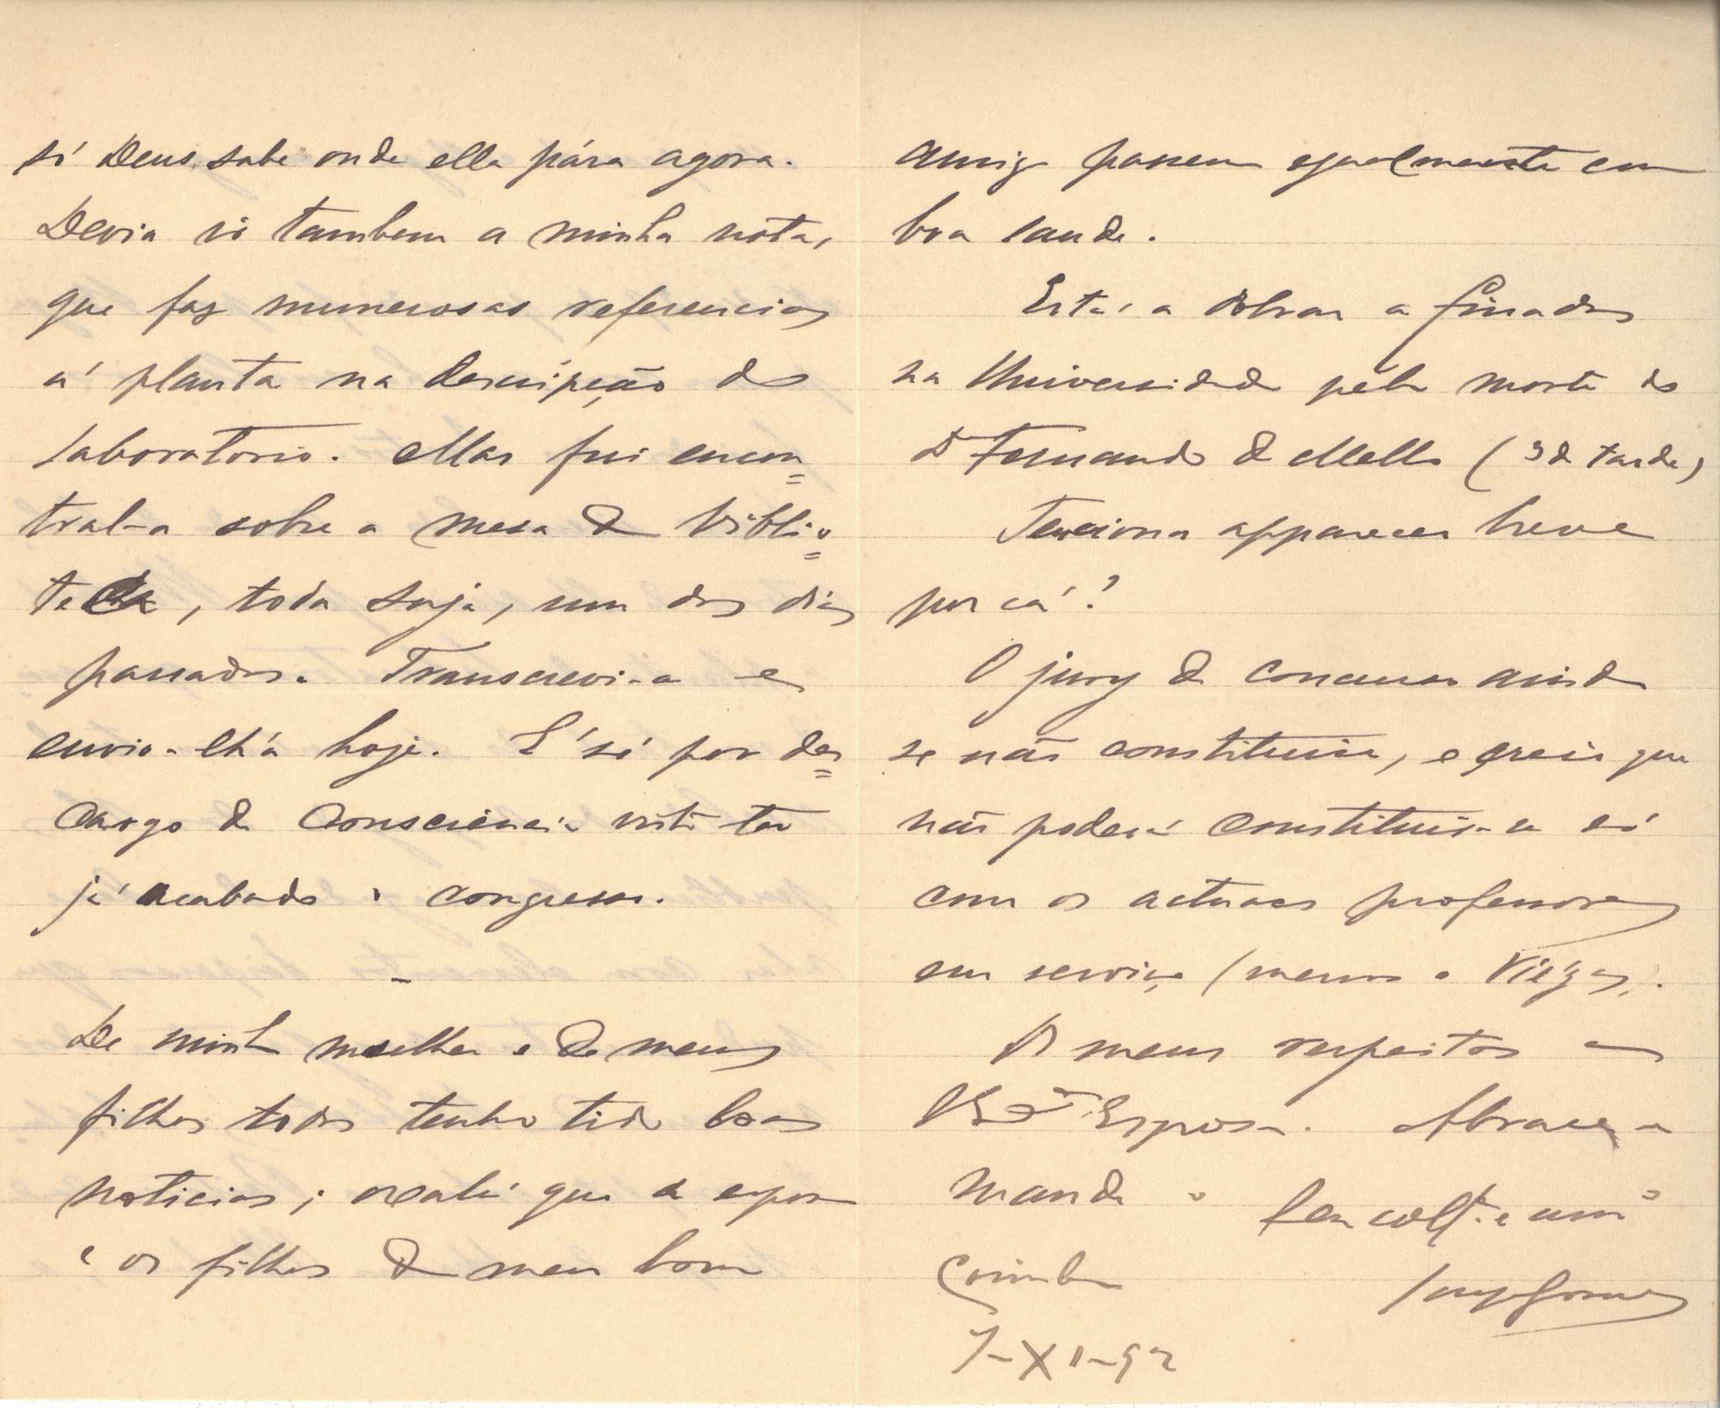 só Deus sabe onde ella pára agora.
Devia ir tambem a minha nota,
que faz numerosas referencias
á planta na descripção do
laboratorio. Mas fui encon=
tral-a sobre a mesa da biblio=
teca, toda suja, um dos dias
passados. Transcrevi-a e
envio-lh'a hoje. É só por des=
cargo de consciencia visto ter
já acabado o congresso.
-
De minha mulher e de meus
filhos todos tenho tido boas
noticias; oxalá que a esposa
e os filhos do meu bom
amigo passem egualmente em
boa saude.
Está a dobrar a finados
na Universidade pela morte do
Dr Fernando de Mello (3 da tarde)
Tenciona apparecer breve
por cá?
O jury de concurso ainda
se não constituiu, e creio que
não poderá constituir-se só
com os actuaes professores
em serviço (menos o Viégas).
Os meus respeitos a
V Ex.ma Esposa. Abraça-o
manda o
Seu coll.a e am.o
Coimbra
7-XI-92